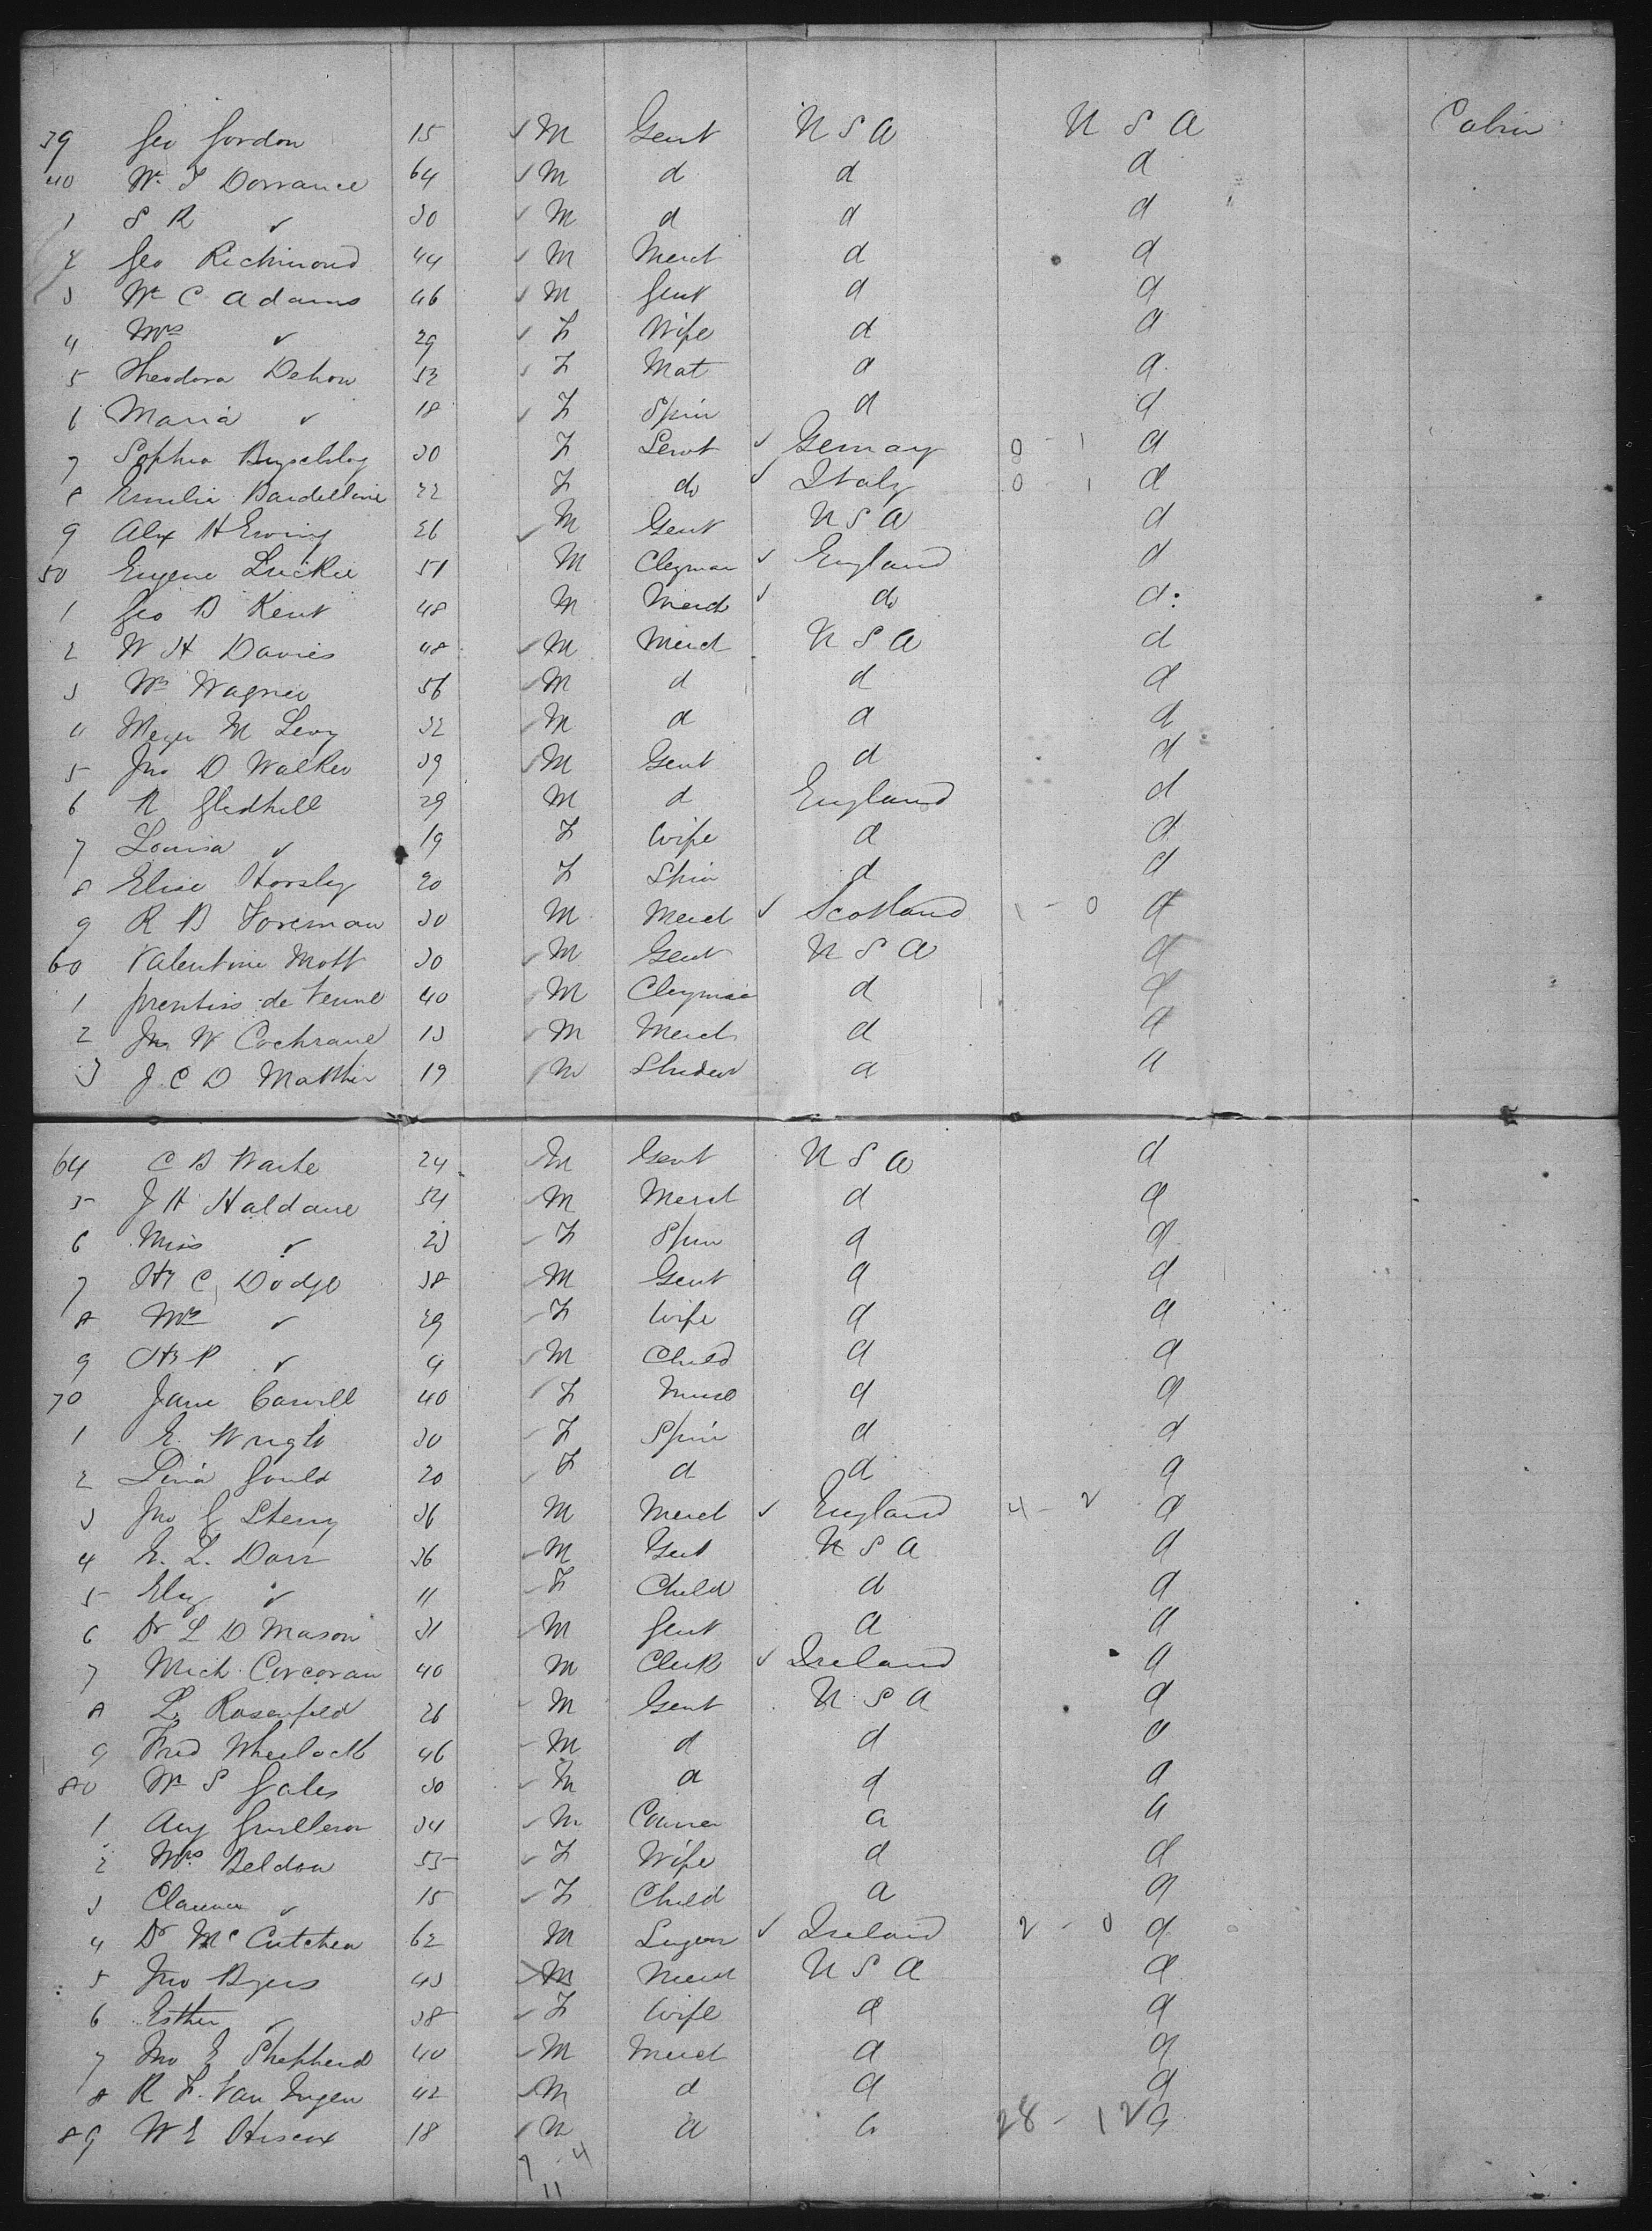 39 Geo Gordon 15 ✓ M Gent U S A U S A Cabin
40 Wm T Dorrance 64 ✓ M d d d
1 S R " 30 ✓ M d d d
2 Geo Richmond 44 ✓ M Merct d d
3 Wm C Adams 46 ✓ M Gent d d
4 Mrs " 29 ✓ F Wife d d
5 Theodora Dehon 52 ✓ F Mat d d
6 Maria " 18 ✓ F Spin d d
7 Sophia 30 F Servt ✓ Germay 0 - 1 d
8 Emilia Bardellini 22 F do ✓ Italy 0 - 1 d
9 Alex H Ewing 26 ✓ M Gent U S A d
50 Eugene Luckie 51 M Clegman ✓ England d
1 Geo B Kent 48 M Merch ✓ do d
2 W H Davies 48 ✓ M Merct U S A d
3 Wm Wagner 56 ✓ M d d d
4 Meyer M Levy 32 ✓ M d d d
5 Jno D Walker 39 ✓ M Gent d d
6 R Gledhill 29 M d England d
7 Louisa " 19 F Wife d d
8 Elise Horsley 20 F Spin d d
9 R B Foreman 30 M Merct ✓ Scotland 1 - 0 d
60 Valentine Mott 30 ✓ M Gent U S A d
1 Prentiss de 40 ✓ M Clegman d d
2 Jno W Cochrane 13 ✓ M Merch d d
3 J. C D Matthie 19 ✓ M Student d d
64 C B Waite 24 ✓ M Gent U S A d
5 J H Haldane 54 ✓ M Merct d d
6 Miss " 23 ✓ F Spin d d
7 Hy C Dodge 38 ✓ M Gent d d
8 Mrs " 29 ✓ F Wife d d
9 Hy P " 4 ✓ M Child d d
70 Jane Carvill 40 ✓ F Nurse d d
1 E. Wright 30 ✓ F Spin d d
2 Lina Gould 20 ✓ F d d d
3 Jno G Sterry 36 M Merct ✓ England 4 - 2 d
4 E. L. Dorr 36 ✓ M Gent U S A d
5 Eliz " 11 ✓ F Child d d
6 Dr L D Mason 31 ✓ M Gent d d
7 Mich Corcoran 40 M Clerk ✓ Ireland d
8 L. Rosenfeld 26 ✓ M Gent U S A d
9 Fred Wheelock 46 ✓ M d d d
80 Wm S Gales 30 ✓ M d d d
1 Aug 34 ✓ M d d
2 Mrs Beldon 55 ✓ F Wife d d
3 Clarence " 15 ✓ F Child d d
4 Dr McCutchen 62 M Surgeon ✓ Ireland 2 - 0 d
5 Jno Byers 43 ✓ M Merct U S A d
6 Esther " 38 ✓ F Wife d d
7 Jno E Shepherd 40 ✓ M Merct d d
8 R F. Van Ingen 42 ✓ M d d d
89 W E Hiscox 18 ✓ M d d 28 - 12 d
7 4
11